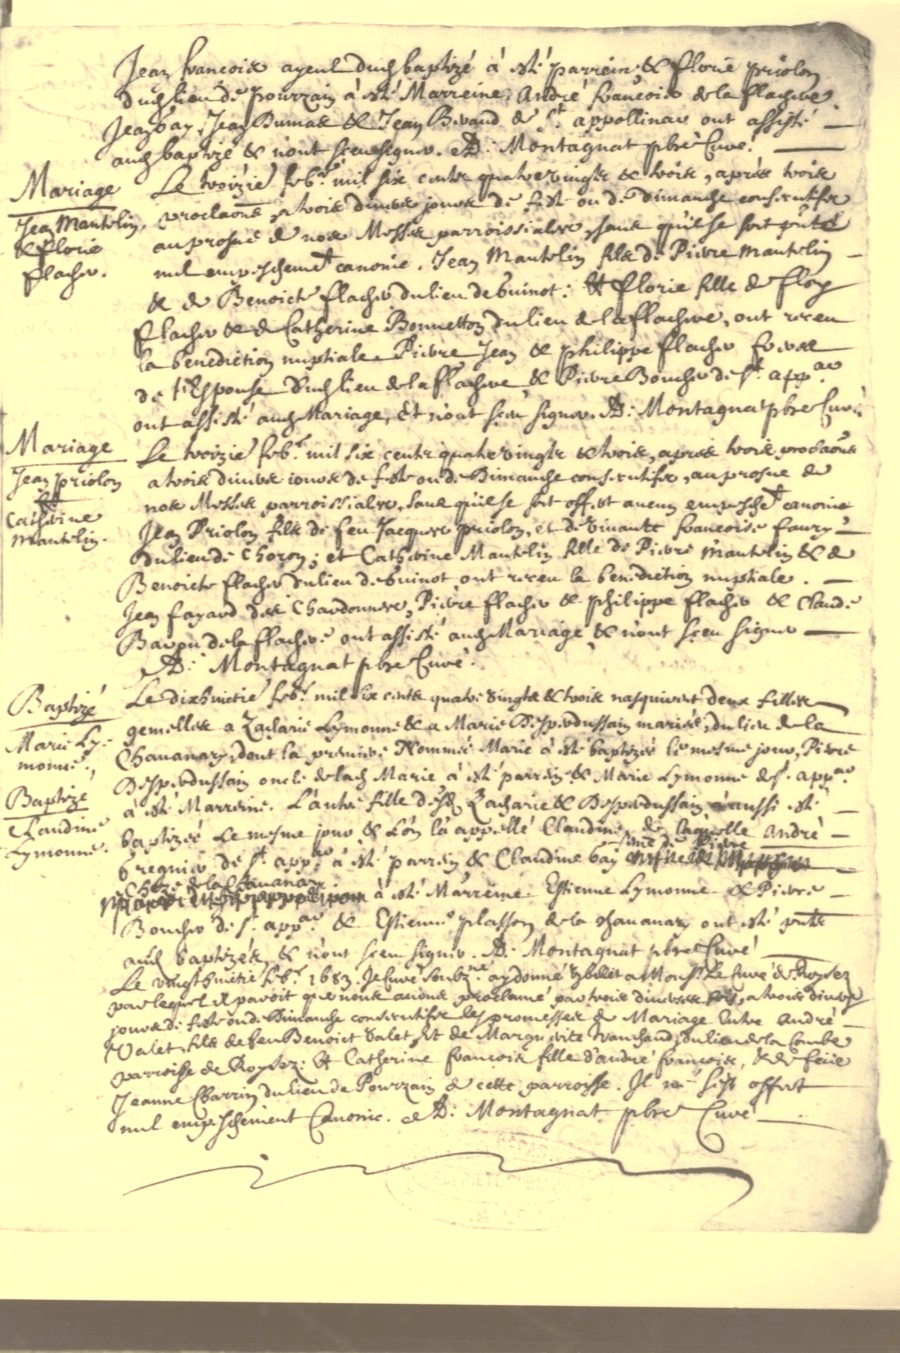 Jean francois ayeul dud baptizé à esté parrein, & florie priolon
dud lieu de pourzain à esté Marreine; André francois de la flachere
Jean bay, Jean Dumas & Jean Bivaud de St appollinar ont assisté
aud baptizé & n'ont sceu signer. D: Montagnat pbre Curé.
Mariage
Jean Mantelin,
& florie
flacher.
Le troizie febr. mil six cents quatre vingts & trois, aprés trois
proclaons, a trois divers jours de feste ou de dimanche consecutifs
au prosne de nos Messes parroissiales, sans qu'il se soit
nul empeschemt canonic. Jean Mantelin fils de Pierre Mantelin
& de Benoicte flacher du lieu de Suinot: Et florie fille de floy
flacher & de Catherine Bonneton du lieu de la flachere, ont receu
la benediction nuptiale Pierre Jean & philippe flacher freres
de l'Espouse dud lieu de la flachere & Pierre Boucher de St. appar
ont assisté aud Mariage, Et n'ont sceu signer. D: Montagnat pbre Curé.
Mariage
Jean priolon
Et
Catherine
mantelin.
Le troizie febr. mil six cents quatre vingts & trois, aprés trois proclaons
a trois divers jours de feste ou de Dimanche consecutifs, au prosne de
nos Messes parroissiales, sans qu'il se soit offert aucun empeschet canonic
Jean Priolon fils de feu Jacques priolon, et de vivante francoise faury
du lieu de Chozon; et Catherine Mantelin fille de Pierre Mantelin & de
Benoicte flacher du lieu de Suinot ont receu la benediction nuptiale.
Jean fayard des Chardonners, Pierre flacher & philippe flacher & Claude
de la flachere ont assisté aud Mariage & n'ont sceu signer
D: Montagnat pbre Curé.
Baptizé
Marie Ly-
monne,
Baptize
Claudine
Lymonne.
Le dixhuictie febr. mil six cents quatre vingts & trois nasquirent deux filles
gemelles a Zacharie Lymonne & a Marie Desperdussain mariés, du lieu de la
Chavanary, dont la premiere Nommée Marie à esté baptizée le mesme jour, Pierre
Desperdussain oncle de lad Marie à esté parrein & Marie Lymonne de St. appar
à esté Marreine. L'autre fille desd Zacharie & Desperdussain a aussi esté
baptizée Le mesme jour & l'on la appellé Claudine, de laquelle André
Gregnier de St. appar à esté parrein & Claudine bay feme de Pierre
de la Chavanary à esté Marreine Estienne Lymonne & Pierre
Boucher de St. appar & Estienne plasson de la Chavanary ont esté pnts
aud baptizés & n'ont sceu signer. D: Montagnat pbre Curé
Le vingthuictie febr. 1683. Je Curé soubzne ay donné a Monsr. Le Curé de Roysez
par lequel il paroit que nous avons proclamé par trois diverses fois, a trois divers
jours de feste ou de Dimanche consecutifs les promesses de Mariage Entre André
Valet, fils de feu Benoict Valet, Et de Marguerite du lieu de la Combe
parroisse de Roysez: Et Catherine francois fille d'andré francois, & de feüe
Jeanne Charrin du lieu de Pourzain de cette parroisse. Il ne s'est offert
nul empeschement Canonic. D: Montagnat pbre Curé